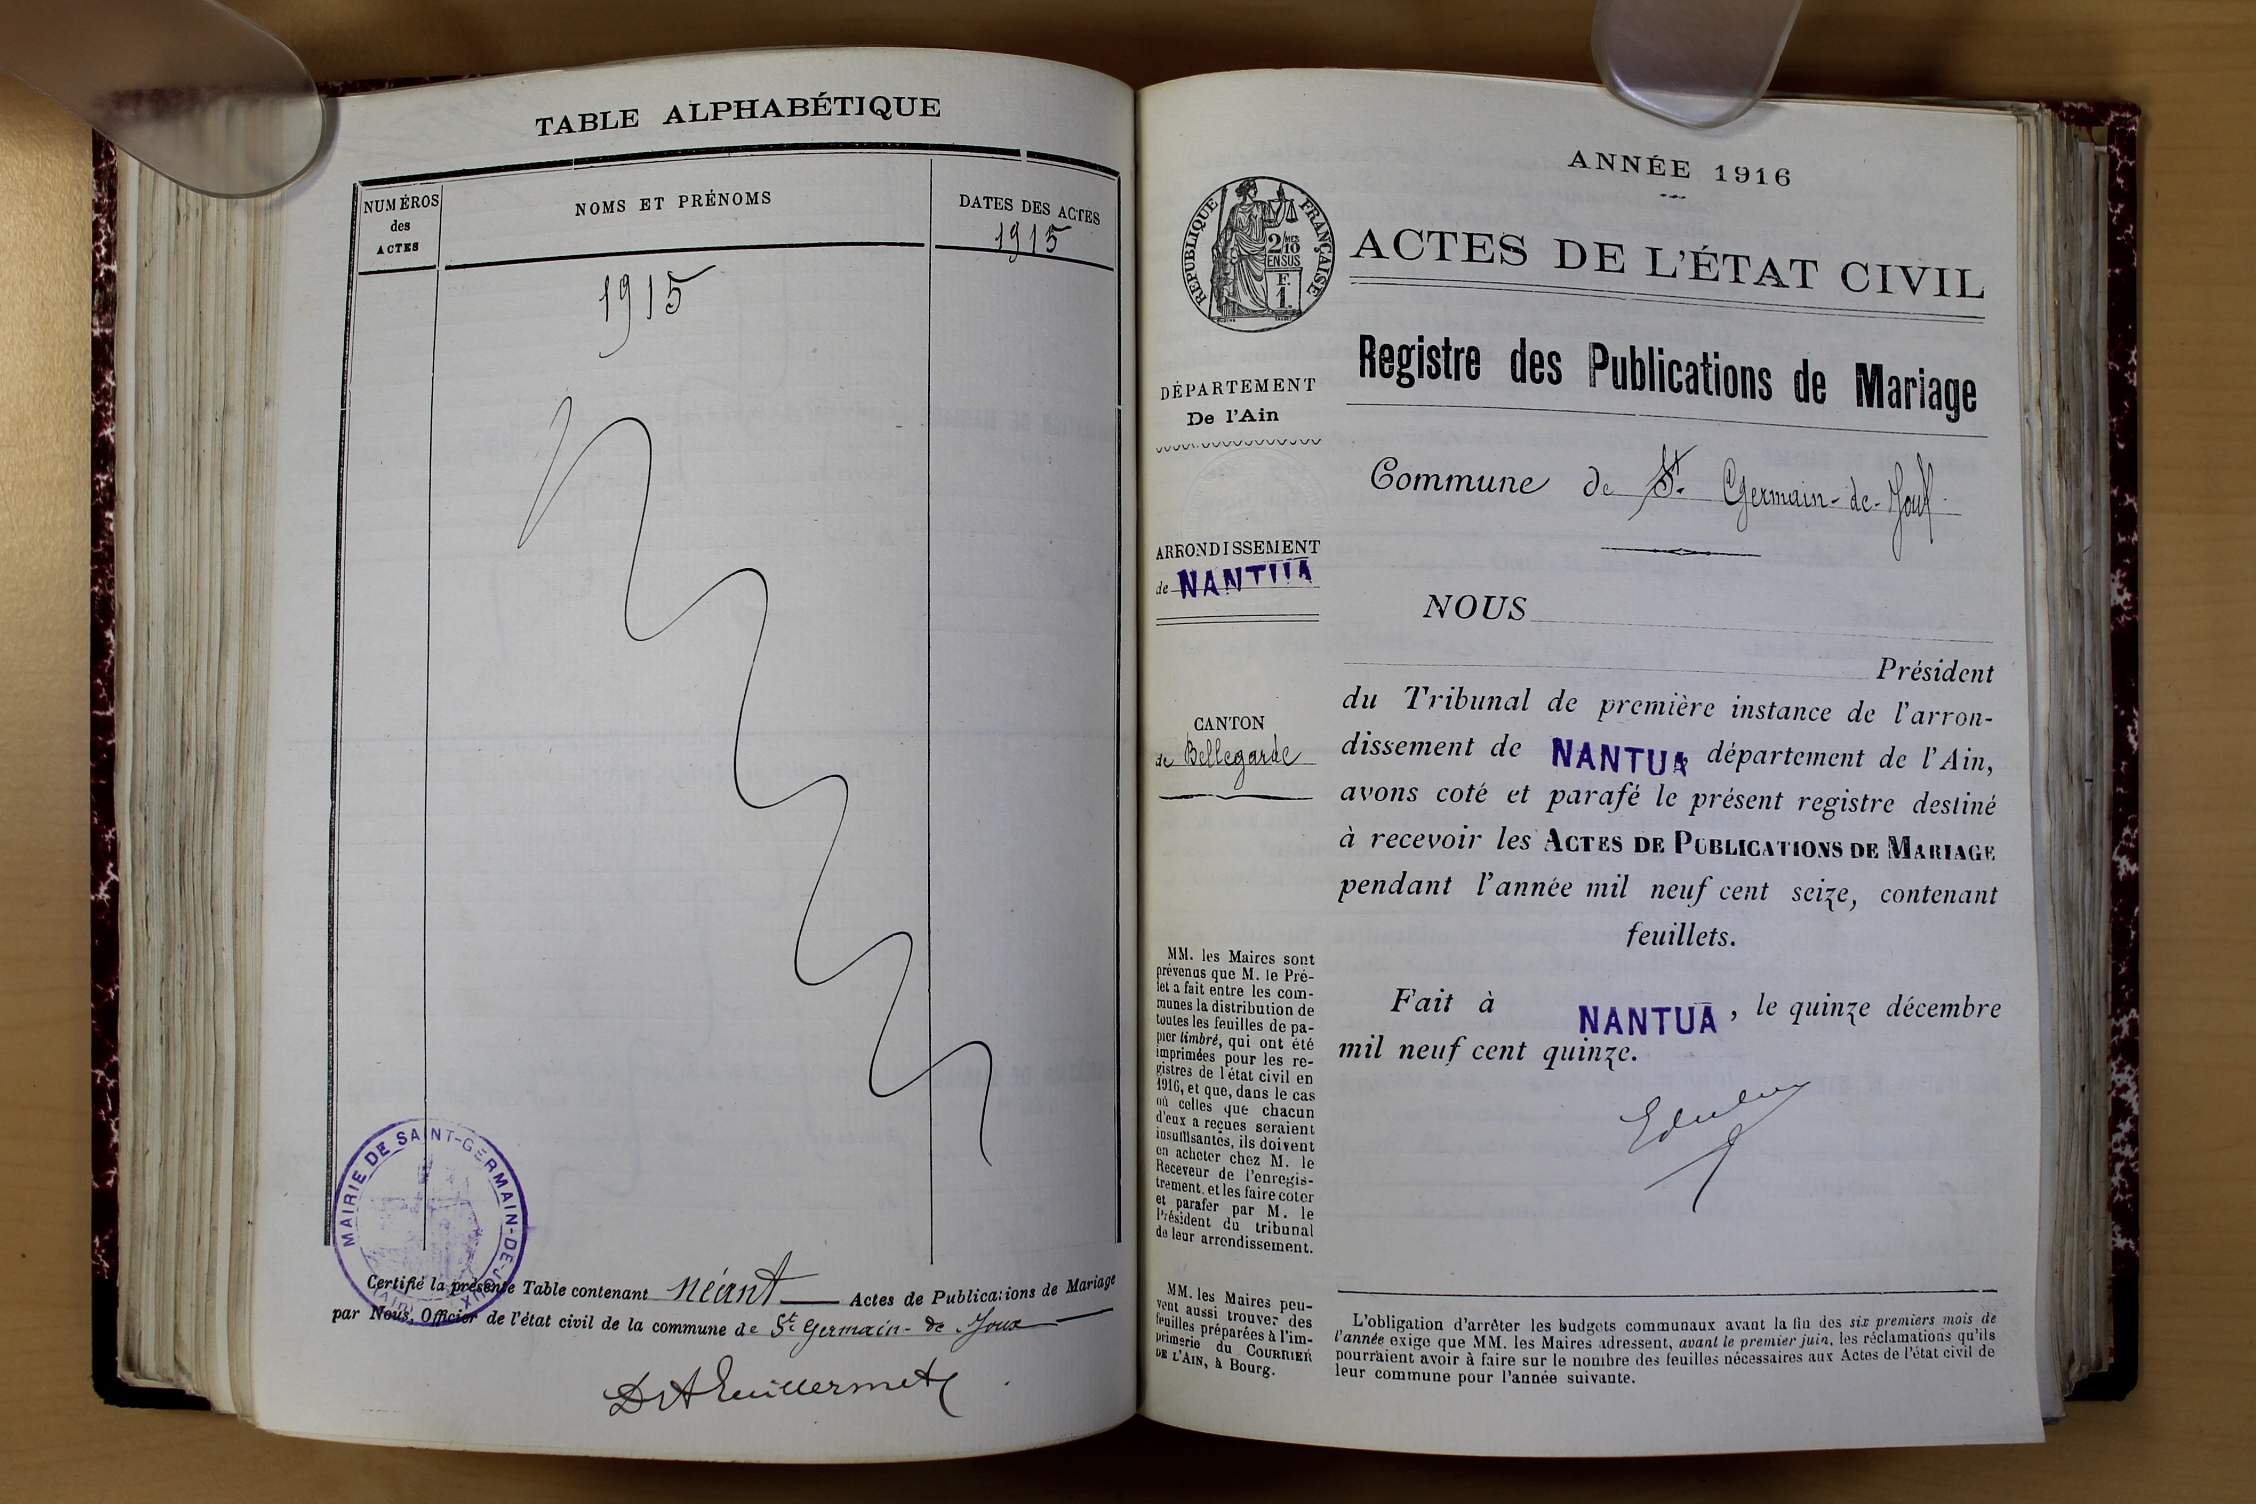 TABLE ALPHABÉTIQUE
NUMÉROS
des
ACTES
NOMS ET PRÉNOMS
DATES DES ACTES
1915
1915
MAIRIE DE SAINT-GERMAIN-DE-JOUX
(Ain)
Certifié la présente Table contenant néant Actes de Publications de Mariage
par Nous, Officier de l'état civil de la commune de St. Germain-de Joux
Dr A Guillermet
ANNÉE 1916
RÉPUBLIQUE FRANÇAISE
2/10 MES
EN SUS
F.
1.
DÉPARTEMENT
De l'Ain
ARRONDISSEMENT
de NANTUA
CANTON
de Bellegarde
MM. les Maires sont
prévenus que M. le Pré-
fet a fait entre les com-
munes la distribution de
toutes les feuilles de pa-
pier timbré, qui ont été
imprimées pour les re-
gistres de l'état civil en
1916, et que, dans le cas
où celles que chacun
d'eux a reçues seraient
insuffisantes, ils doivent
en acheter chez M. le
Receveur de l'enregis-
trement, et les faire coter
et parafer par M. le
Président du tribunal
de leur arrondissement.
MM. les Maires peu-
vent aussi trouver des
feuilles préparées à l'im-
primerie du COURRIER
DE L'AIN, à Bourg.
ACTES DE L'ÉTAT CIVIL
Registre des Publications de Mariage
Commune de St. Germain-de-Joux
NOUS
Président
du Tribunal de première instance de l'arron-
dissement de NANTUA département de l'Ain,
avons coté et parafé le présent registre destiné
à recevoir les ACTES DE PUBLICATIONS DE MARIAGE
pendant l'année mil neuf cent seize, contenant
feuillets.
Fait à NANTUA, le quinze décembre
mil neuf cent quinze.
L'obligation d'arrêter les budgets communaux avant la fin des six premiers mois de
l'année exige que MM. les Maires adressent, avant le premier juin, les réclamations qu'ils
pourraient avoir à faire sur le nombre des feuilles nécessaires aux Actes de l'état civil de
leur commune pour l'année suivante.